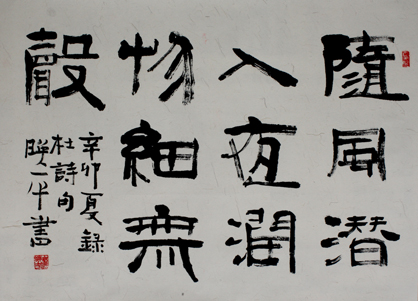 隨風潛
入夜潤
物細無
聲
辛卯夏錄
杜詩句
一 書